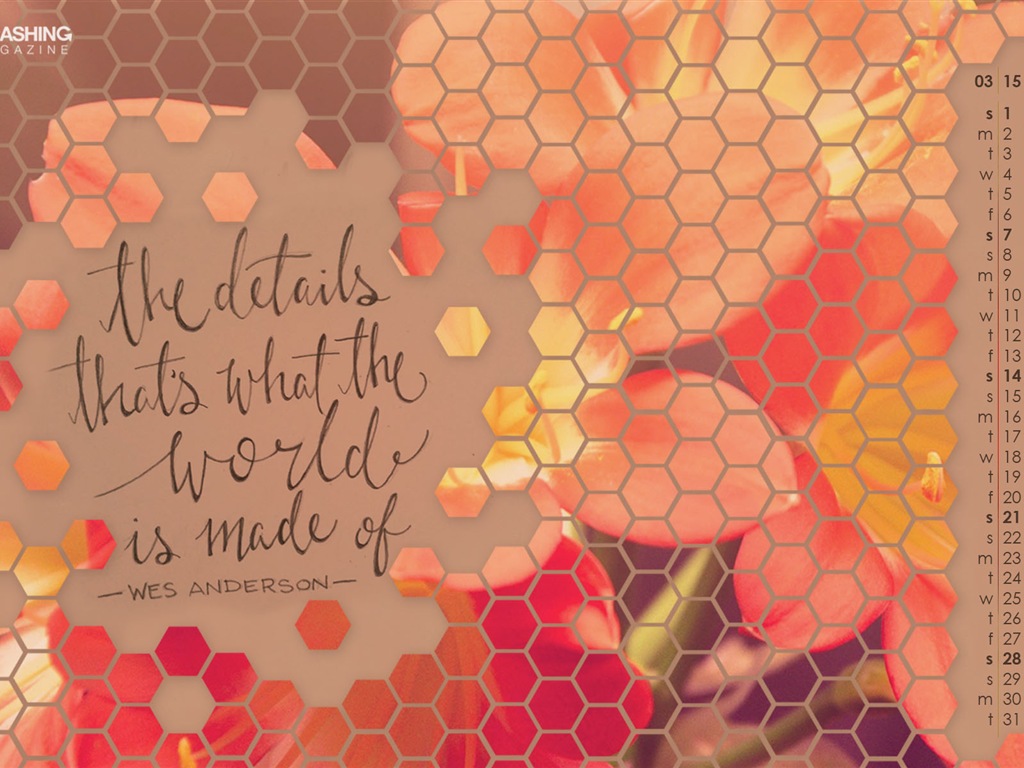 ASHING
GAZINE
the details
that's what the
world
is made of
—WES ANDERSON—
03 15
s 1
m 2
t 3
w 4
t 5
f 6
s 7
s 8
m 9
t 10
w 11
t 12
f 13
s 14
s 15
m 16
t 17
w 18
t 19
f 20
s 21
s 22
m 23
t 24
w 25
t 26
f 27
s 28
s 29
m 30
t 31